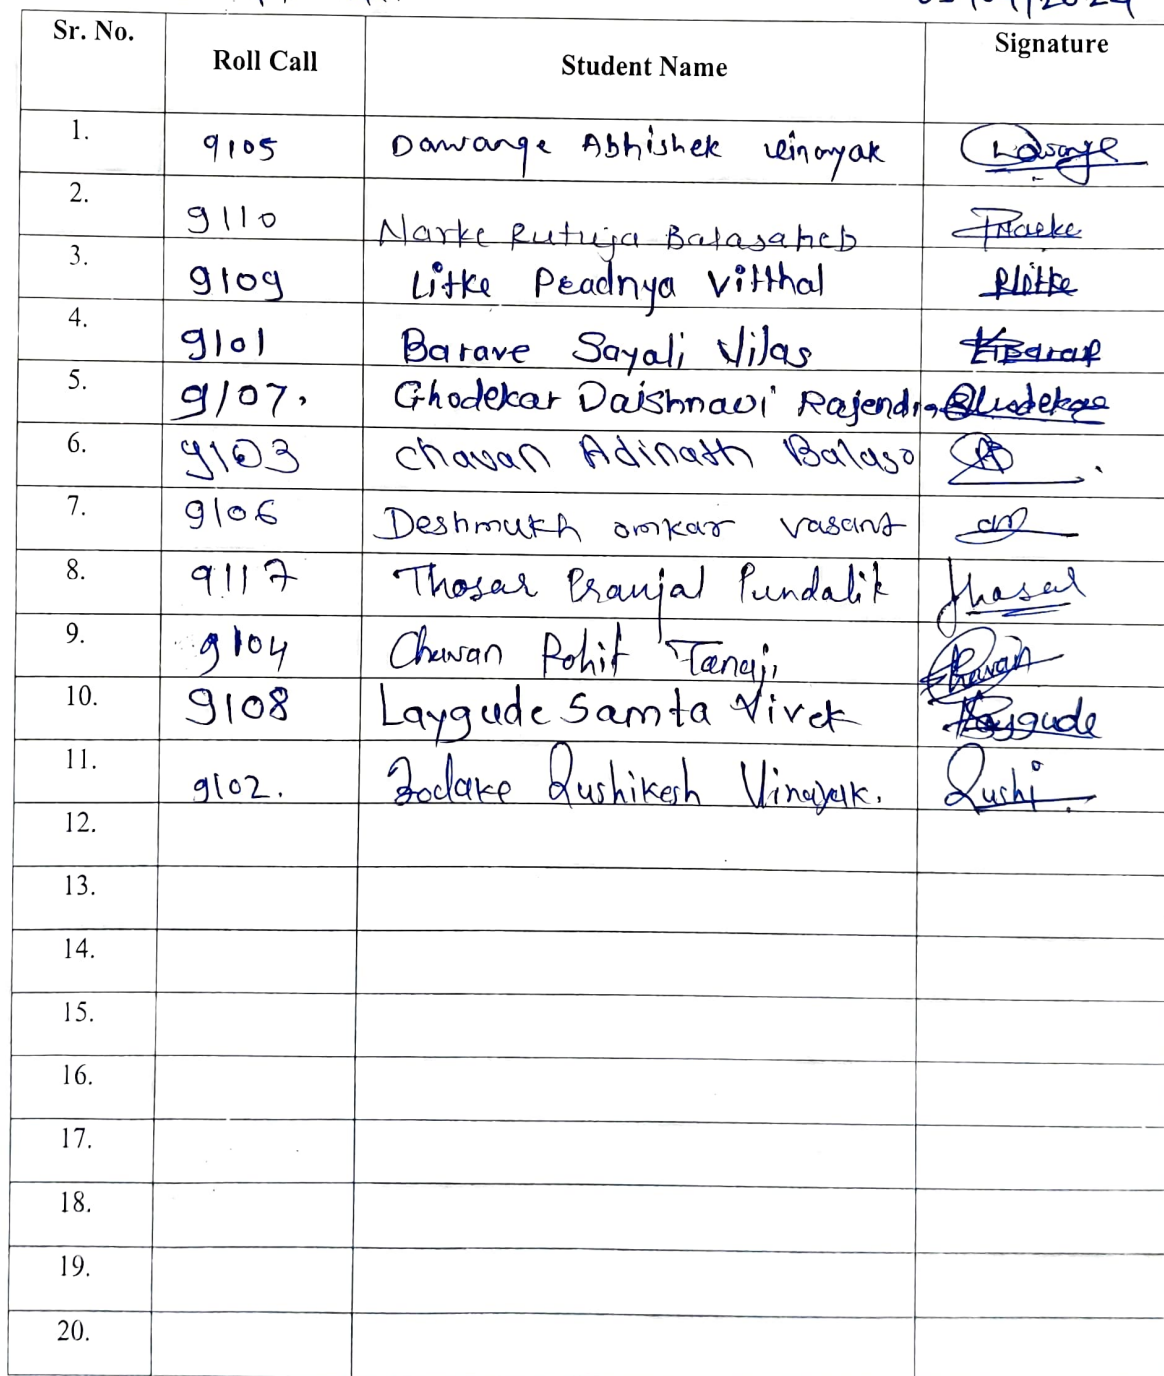 Sr. No. Roll Call Student Name Signature
1. 9105 Dawange Abhishek Vinayak
2. 9110 Narke Rutuja Balasaheb
3. 9109 Litke Pradnya Vitthal Plitke
4. 9101 Barave Sayali Vilas
5. 9107. Ghodekar Vaishnavi Rajendra Ghodekar
6. 9103 Chavan Adinath Balaso
7. 9106 Deshmukh omkar vasant
8. 9117 Thosar Pranjal Pundalik
9. 9104 Chavan Rohit Tanaji
10. 9108 Laygude Samta Vivek Laygude
11. 9102. Rushikesh Vinayak. Rushi
12.
13.
14.
15.
16.
17.
18.
19.
20.